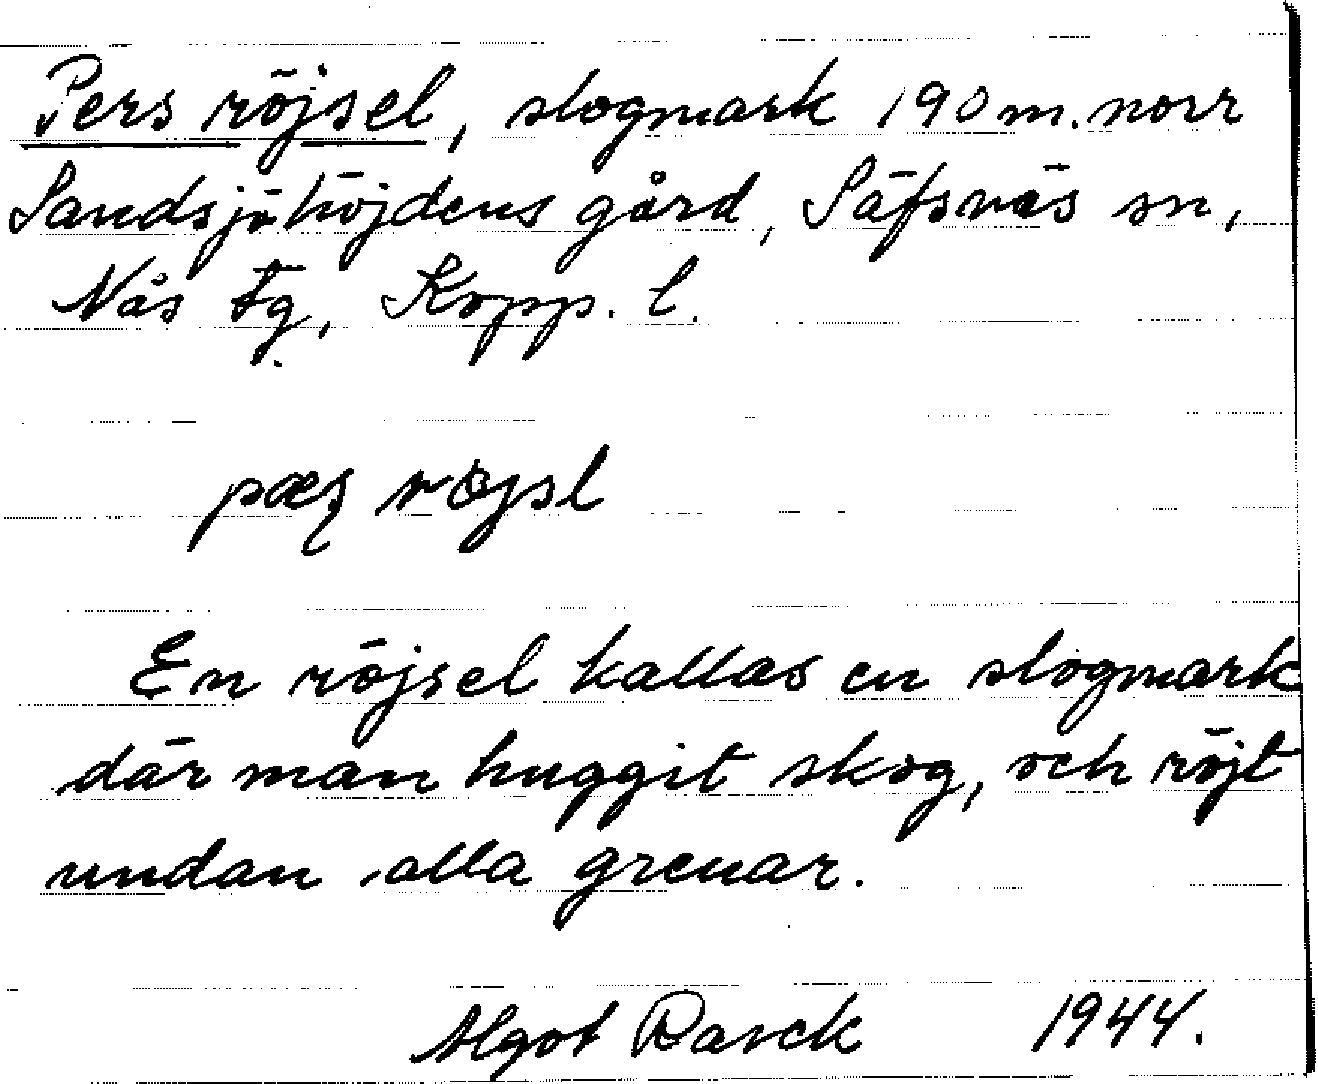 Pers röjsel, slogmark 190 m. norr
Sandsjöhöjdens gård, Säfsnäs sn,
Nås tg, Kopp. l.
röjsl
En röjsel kallas en slogmark
där man huggit skog, och röjt
undan alla grenar.
Algot 1944.